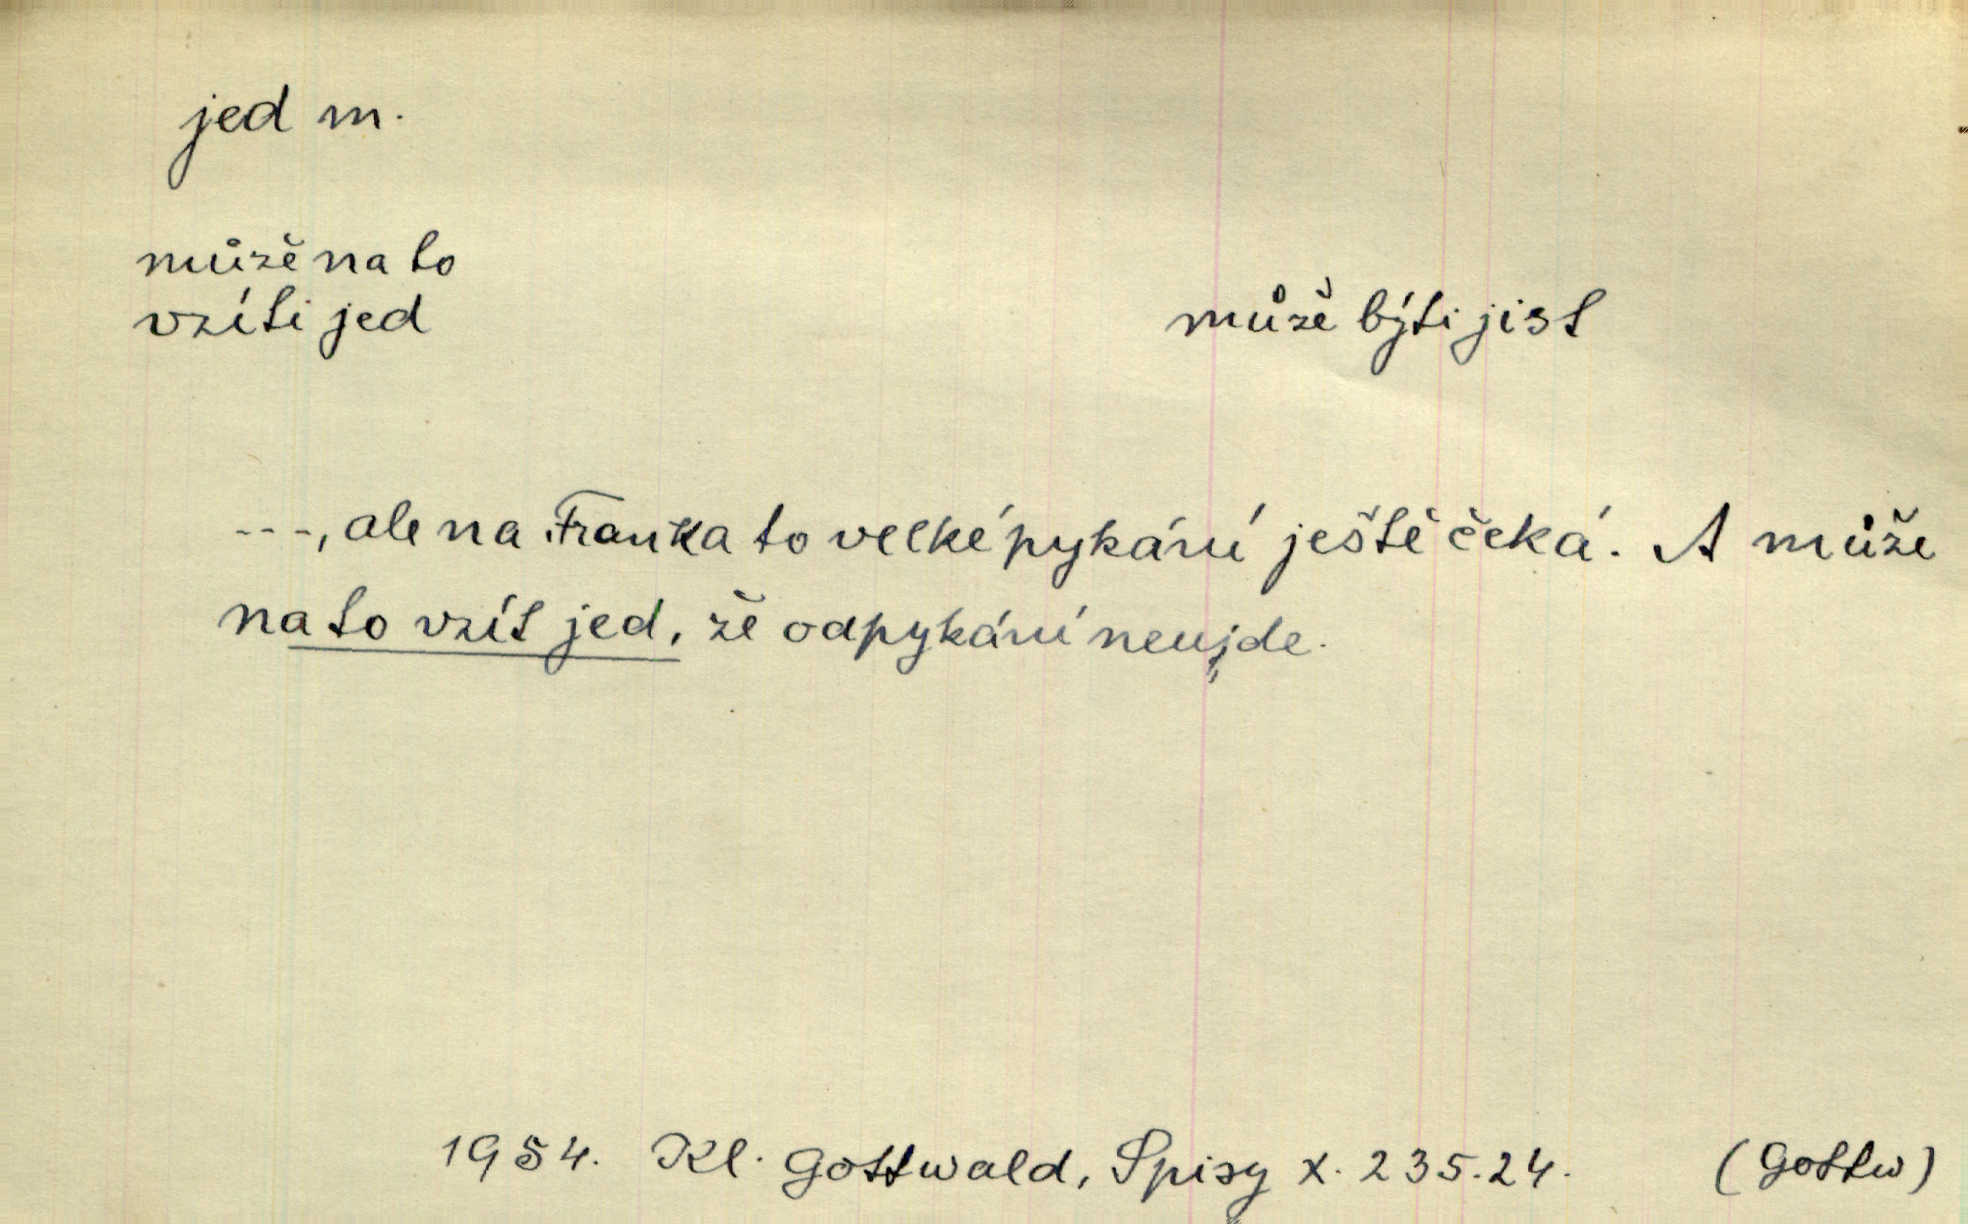 jed m.
může na to
vzíti jed
může býti jist
---, ale na Franka to velké pykání ještě čeká. A může
na to vzít jed, že odpykání neujde.
1954. Kl. Gottwald, Spisy X. 235.24. (Gottw)